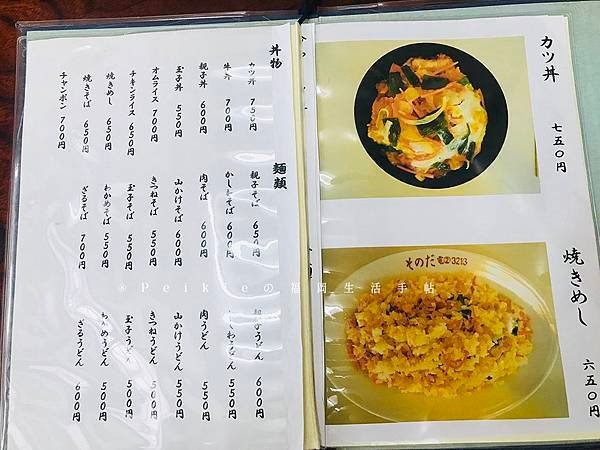 カツ丼
七五〇円
焼きめし
六五〇円
そのだ
3213
丼物
カツ丼 750円
牛丼 700円
親子丼 600円
玉子丼 550円
オムライス 700円
チキンライス 650円
焼きめし 650円
焼きそば 650円
チャンポン 700円
麺類
親子そば 650円
かしわそば 600円
肉そば 600円
山かけそば 600円
きつねそば 550円
玉子そば 550円
わかめそば 550円
ざるそば 700円
親子うどん 600円
かしわうどん 550円
肉うどん 550円
山かけうどん 550円
きつねうどん 500円
玉子うどん 500円
わかめうどん 500円
ざるうどん 600円
®Peikieの福岡生活手帖